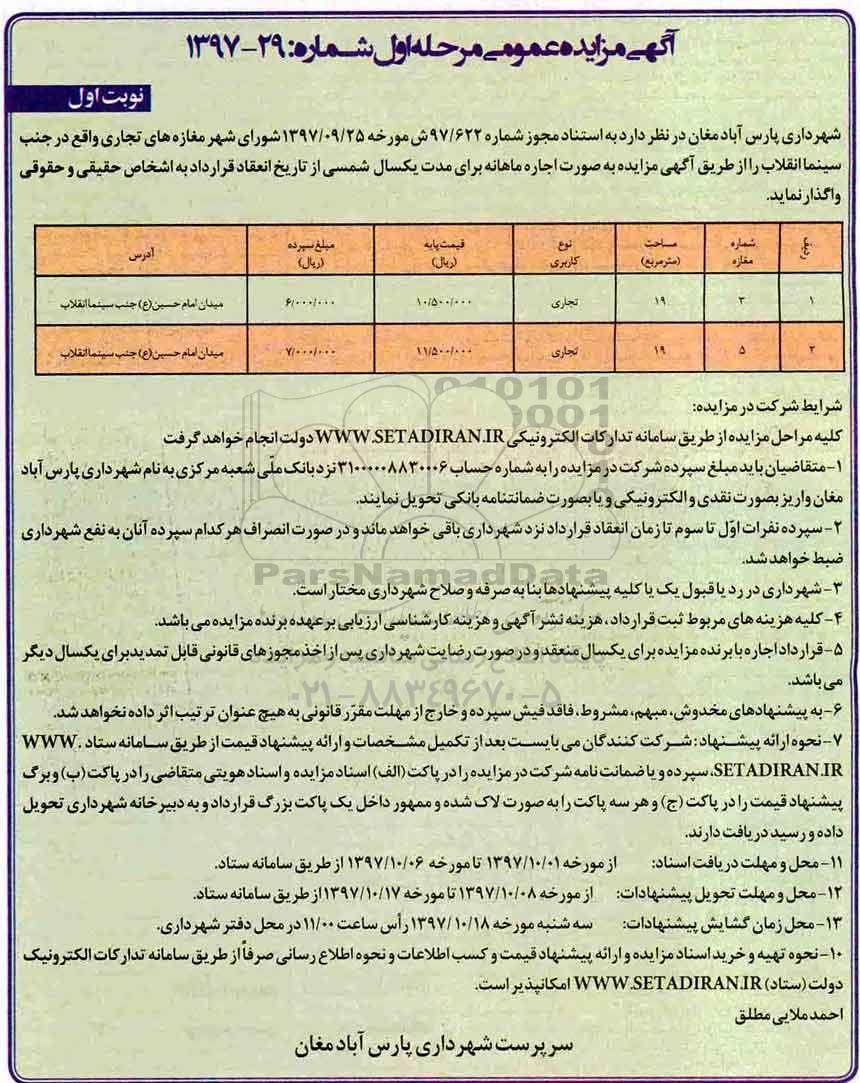 آگهی مزایده عمومی مرحله اول شماره: ۲۹-۱۳۹۷
نوبت اول
شهرداری پارس آباد مغان در نظر دارد به استناد مجوز شماره ۹۷/۶۲۲ ش مورخه ۱۳۹۷/۰۹/۲۵ شورای شهر مغازه های تجاری واقع در جنب
سینما انقلاب را از طریق آگهی مزایده به صورت اجاره ماهانه برای مدت یکسال شمسی از تاریخ انعقاد قرارداد به اشخاص حقیقی و حقوقی
واگذار نماید.
ردیف | شماره مغازه | مساحت (مترمربع) | نوع کاربری | قیمت پایه (ریال) | مبلغ سپرده (ریال) | آدرس
۱ | ۳ | ۱۹ | تجاری | ۱۰/۵۰۰/۰۰۰ | ۶/۰۰۰/۰۰۰ | میدان امام حسین(ع) جنب سینما انقلاب
۲ | ۵ | ۱۹ | تجاری | ۱۱/۵۰۰/۰۰۰ | ۷/۰۰۰/۰۰۰ | میدان امام حسین(ع) جنب سینما انقلاب
شرایط شرکت در مزایده:
کلیه مراحل مزایده از طریق سامانه تدارکات الکترونیکی WWW.SETADIRAN.IR دولت انجام خواهد گرفت
۱- متقاضیان باید مبلغ سپرده شرکت در مزایده را به شماره حساب ۳۱۰۰۰۰۰۸۸۳۰۰۰۶ نزد بانک ملّی شعبه مرکزی به نام شهرداری پارس آباد
مغان واریز بصورت نقدی و الکترونیکی و یا بصورت ضمانتنامه بانکی تحویل نمایند.
۲- سپرده نفرات اوّل تا سوم تا زمان انعقاد قرارداد نزد شهرداری باقی خواهد ماند و در صورت انصراف هر کدام سپرده آنان به نفع شهرداری
ضبط خواهد شد.
ParsNamadData
۳- شهرداری در رد یا قبول یک یا کلیه پیشنهادها بنا به صرفه و صلاح شهرداری مختار است.
۴- کلیه هزینه های مربوط ثبت قرارداد، هزینه نشر آگهی و هزینه کارشناسی ارزیابی بر عهده برنده مزایده می باشد.
۵- قرارداد اجاره با برنده مزایده برای یکسال منعقد و در صورت رضایت شهرداری پس از اخذ مجوزهای قانونی قابل تمدید برای یکسال دیگر
می باشد.
۰۲۱-۸۸۳۴۹۶۷۰-۵
۶- به پیشنهادهای مخدوش، مبهم، مشروط، فاقد فیش سپرده و خارج از مهلت مقرّر قانونی به هیچ عنوان ترتیب اثر داده نخواهد شد.
۷- نحوه ارائه پیشنهاد: شرکت کنندگان می بایست بعد از تکمیل مشخصات و ارائه پیشنهاد قیمت از طریق سامانه ستاد WWW.
SETADIRAN.IR، سپرده و یا ضمانت نامه شرکت در مزایده را در پاکت (الف) اسناد مزایده و اسناد هویتی متقاضی را در پاکت (ب) و برگ
پیشنهاد قیمت را در پاکت (ج) و هر سه پاکت را به صورت لاک شده و ممهور داخل یک پاکت بزرگ قرارداد و به دبیرخانه شهرداری تحویل
داده و رسید دریافت دارند.
۱۱- محل و مهلت دریافت اسناد: از مورخه ۱۳۹۷/۱۰/۰۱ تا مورخه ۱۳۹۷/۱۰/۰۶ از طریق سامانه ستاد.
۱۲- محل و مهلت تحویل پیشنهادات: از مورخه ۱۳۹۷/۱۰/۰۸ تا مورخه ۱۳۹۷/۱۰/۱۷ از طریق سامانه ستاد.
۱۳- محل زمان گشایش پیشنهادات: سه شنبه مورخه ۱۳۹۷/۱۰/۱۸ رأس ساعت ۱۱/۰۰ در محل دفتر شهرداری.
۱۰- نحوه تهیه و خرید اسناد مزایده و ارائه پیشنهاد قیمت و کسب اطلاعات و نحوه اطلاع رسانی صرفاً از طریق سامانه تدارکات الکترونیک
دولت (ستاد) WWW.SETADIRAN.IR امکانپذیر است.
احمد ملایی مطلق
سرپرست شهرداری پارس آباد مغان